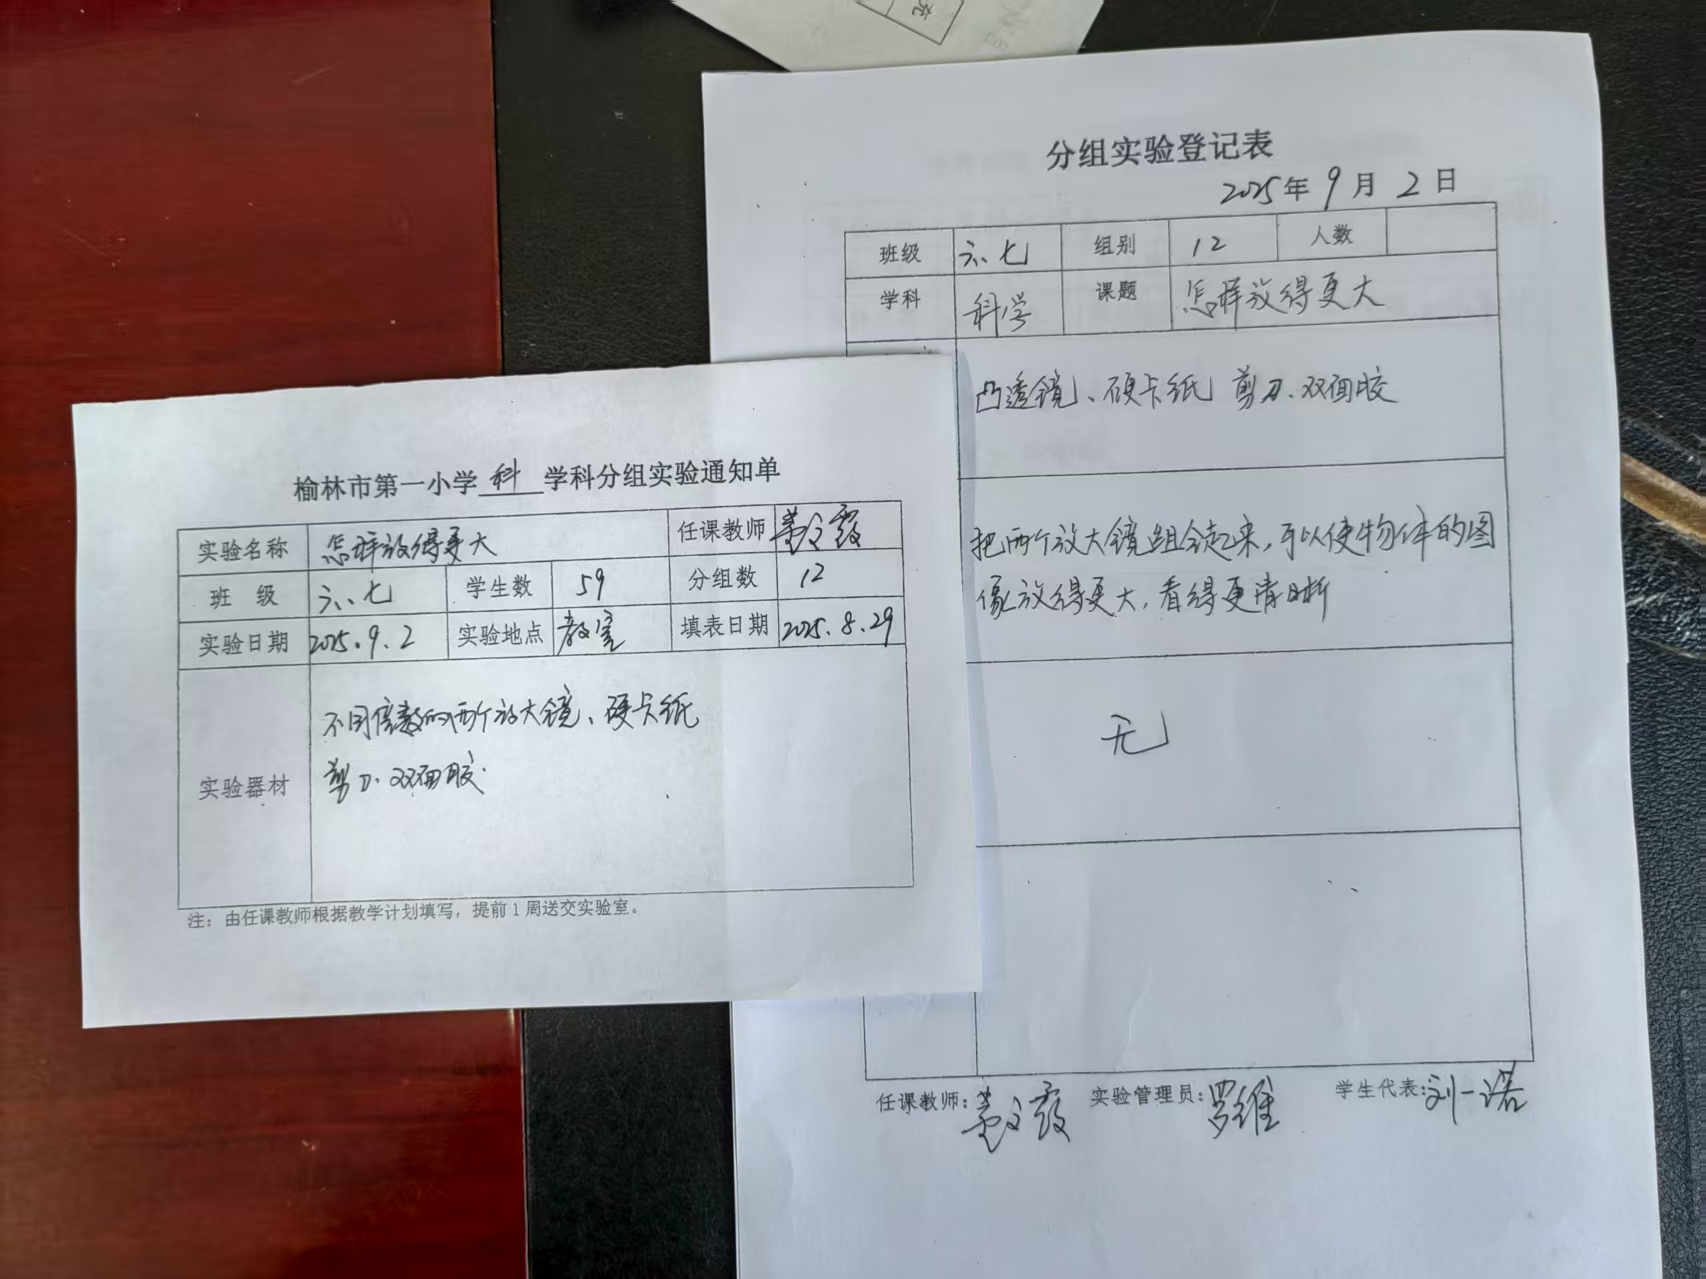 榆林市第一小学 科 学科分组实验通知单
实验名称 怎样放得更大 任课教师 姜文霞
班 级 六、七 学生数 59 分组数 12
实验日期 2025.9.2 实验地点 教室 填表日期 2025.8.29
实验器材 不同倍数的两个放大镜、硬卡纸
剪刀、双面胶
注：由任课教师根据教学计划填写，提前1周送交实验室。
分组实验登记表
2025年 9 月 2 日
班级 六、七 组别 12 人数
学科 科学 课题 怎样放得更大
凸透镜、硬卡纸 剪刀、双面胶
把两个放大镜组合起来，可以使物体的图
像放得更大，看得更清晰
无
任课教师：姜文霞 实验管理员：罗维 学生代表：刘一诺